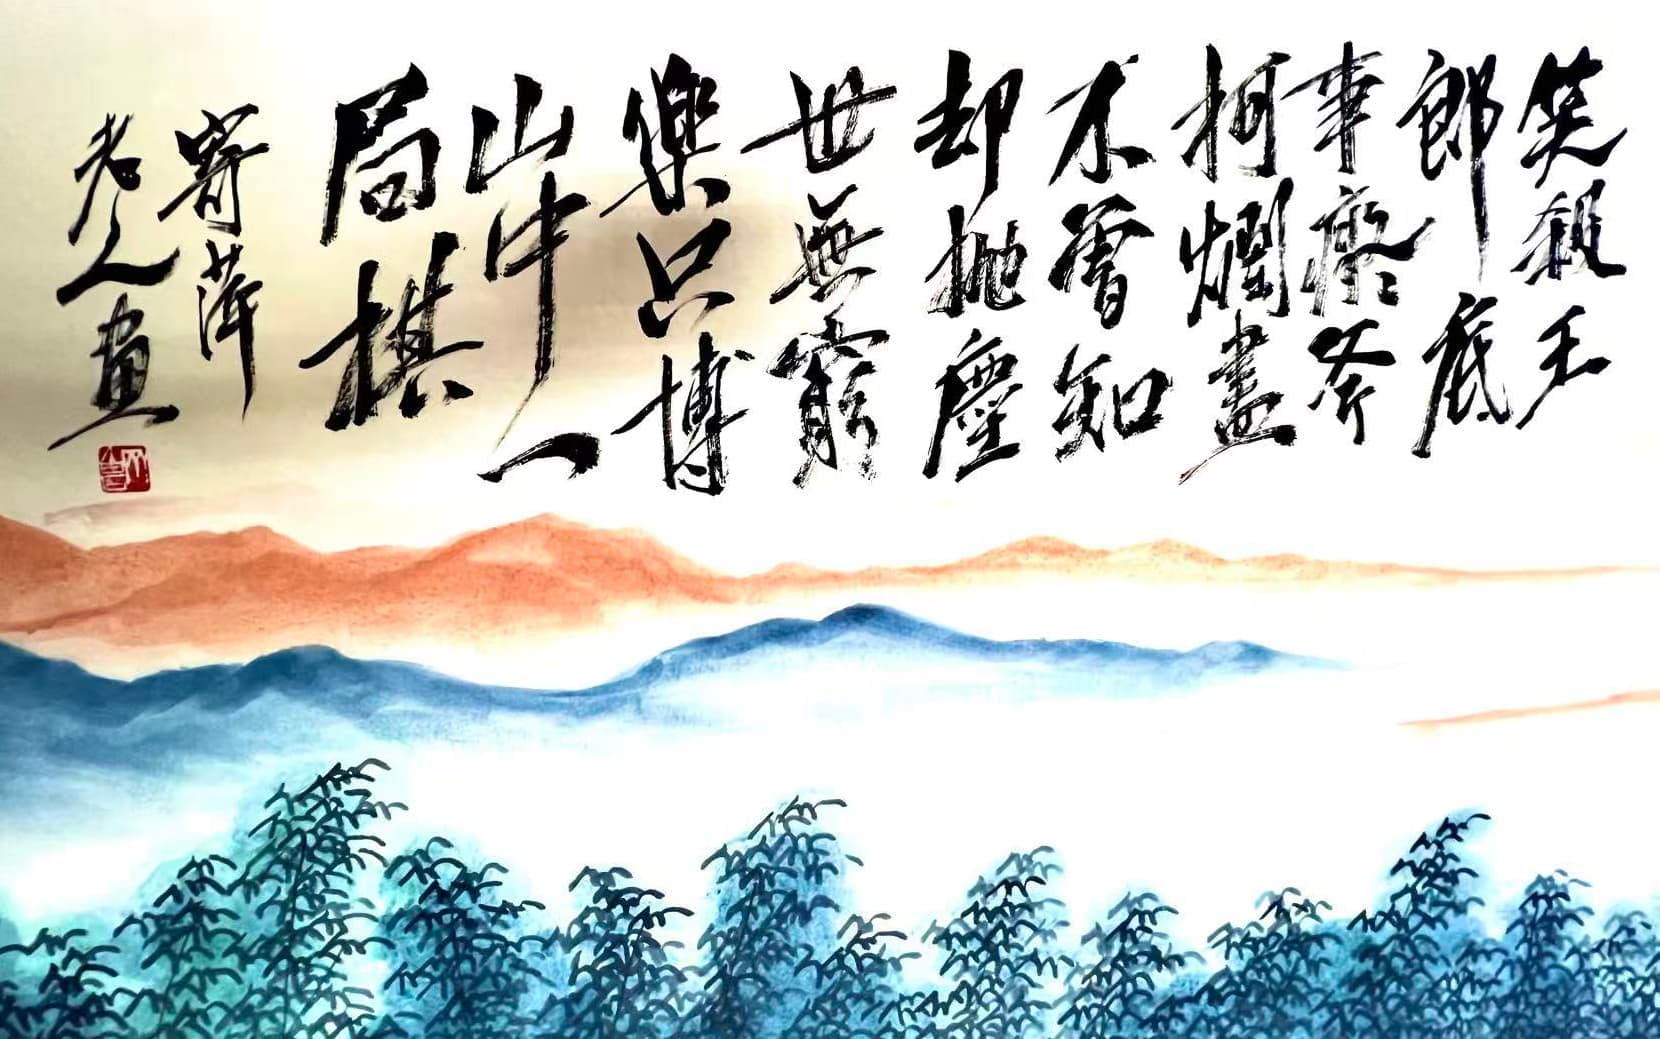 笑殺王
郎底
事癡斧
柯爛盡
不曾知
却拋塵
世無窮
樂只博
山中一
局棋
寄萍
老人畫